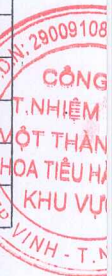 29009108
CÔNG
T.NHIỆM
MỘT THÀN
HOA TIÊU HÀ
KHU VỰ
VINH - T.